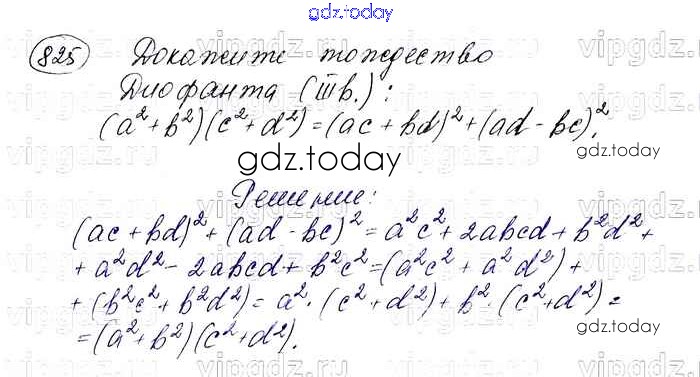 gdz.today
825 Докажите тождество
Диофанта (III в.):
(a²+b²)(c²+d²)=(ac+bd)²+(ad-bc)².
gdz.today
gdz.today
Решение:
(ac+bd)²+(ad-bc)²=a²c²+2abcd+b²d²+
+a²d²-2abcd+b²c²=(a²c²+a²d²)+
+(b²c²+b²d²)=a²·(c²+d²)+b²·(c²+d²)=
=(a²+b²)(c²+d²).
gdz.today